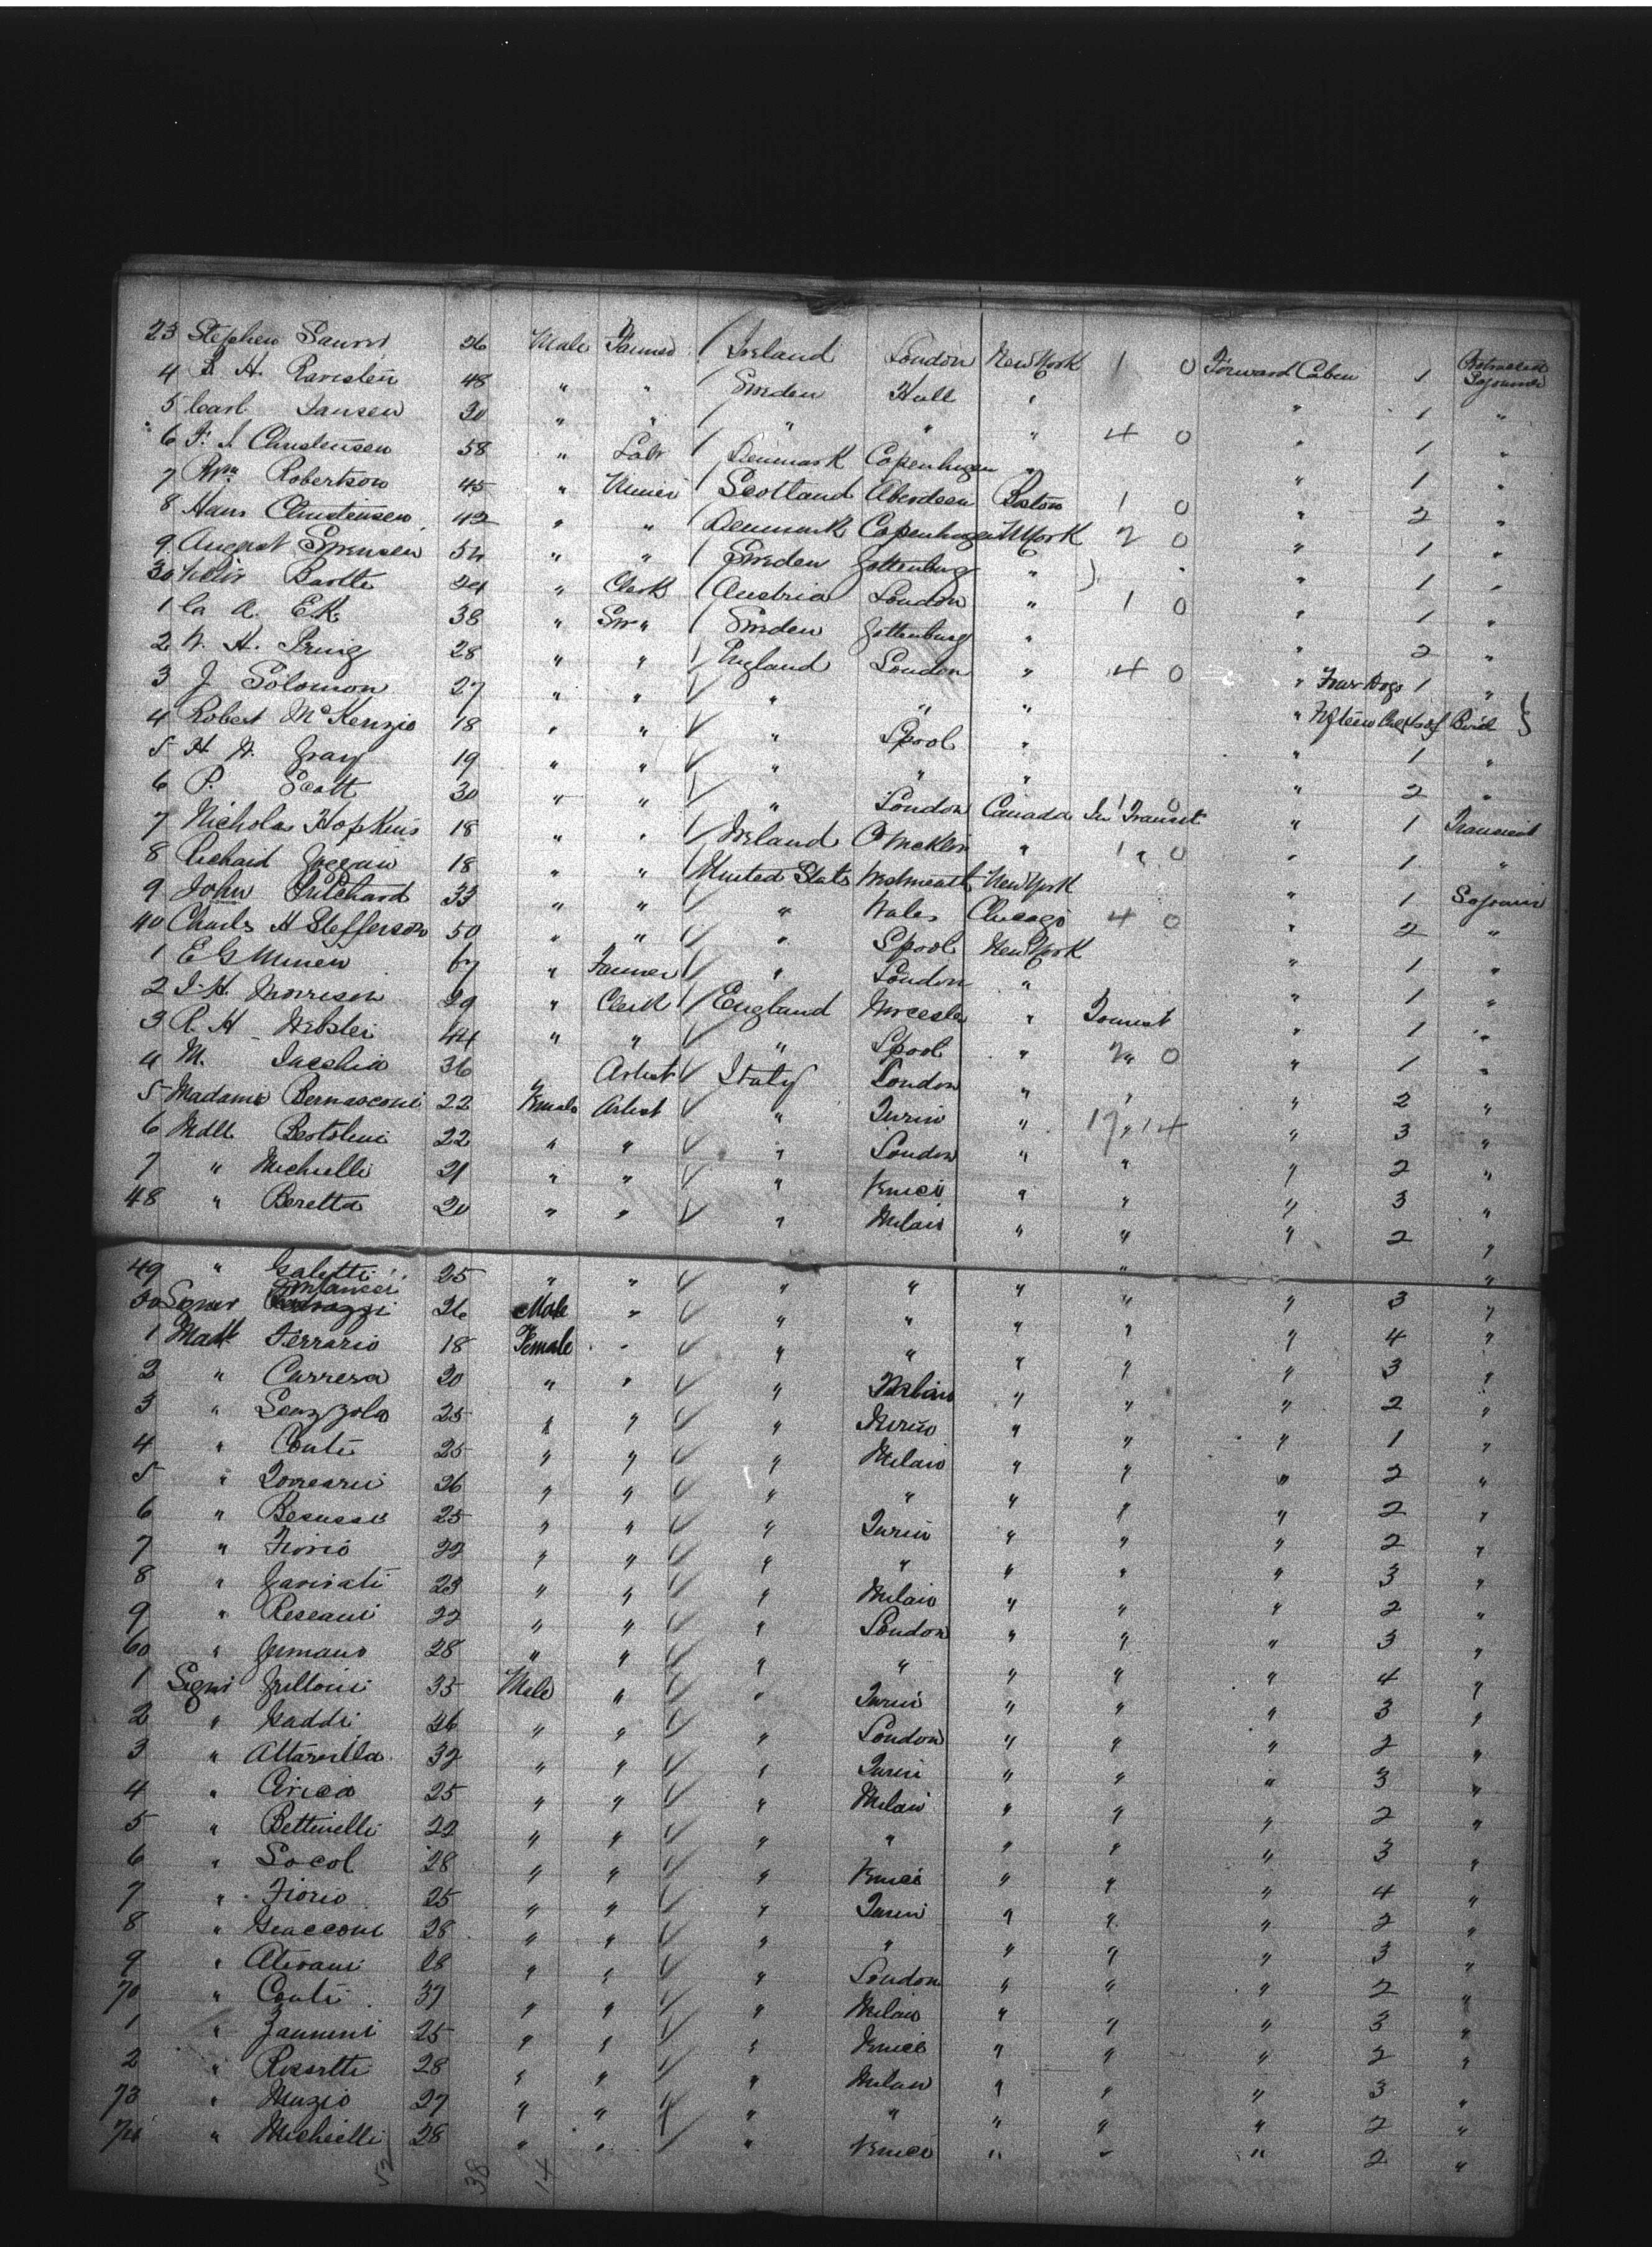 23 Stephen 26 Male Ireland London New York 1 0 Forward Cabin 1
4 H. 48 " " Sweden Hull " " 1 "
5 Carl Jansen 30 " " " " " 4 0 " 1 "
6 Christensen 58 " Labr Denmark Copenhagen " " 1 "
7 Wm Robertson 45 " Miner Scotland Aberdeen Boston 1 0 " 2 "
8 Hans Christensen 42 " " Denmark Copenhagen N York 2 0 " 1 "
9 August Sorensen 54 " " Sweden Gottenburg " " 1 "
30 24 " Clerk Austria London " 1 0 " 1 "
1 Ca A. Ek 38 " " Sweden Gottenburg " " 2 "
2 W. H. Pring 28 " " England London " 4 0 " Four Dogs 1 "
3 J Solomon 27 " " " " " " Fifteen of Birds
4 Robert McKenzie 18 " " " Lpool " " 1 "
5 H W. Gray 19 " " " " " " 2 "
6 P. Scott 30 " " " London Canada In Transit 1 0 " 1 Transient
7 Nicholas Hopkins 18 " " Ireland " 1 " 0 " 1 "
8 Richard 18 " " United States Westmeath New York " 1 Sojourn
9 John Pritchard 33 " " " Wales Chicago 4 0 " 2 "
40 Charles H Stefferson 50 " " " Lpool New York " 1 "
1 E G 67 " Farmer " London " " 1 "
2 J. H. Morrison 29 " Clerk England Worcester " Tourist " 1 "
3 R. H Webster 44 " " " Lpool " 2 " 0 " 1 "
4 M. 36 " Artist Italy London " " " 2 "
5 Madame Bernasconi 22 Female Artist " Turin " 17 " 14 " 3 "
6 Mdll Bertolini 22 " " " London " " " 2 "
7 " Michielli 21 " " " Venice " " " 3 "
48 " Beretta 20 " " " Milan " " " 2 "
49 " Galetti 25 " " " " " " " 3 "
50 Signor 26 Male " " " " " " 4 "
1 Madll Ferrario 18 Female " " " " " " 3 "
2 " Carrera 20 " " " Milan " " " 2 "
3 " 25 " " " Turin " " " 1 "
4 " Conti 25 " " " Milan " " " 2 "
5 " 26 " " " " " " " 2 "
6 " 25 " " " Turin " " " 2 "
7 " Fiorio 22 " " " " " " " 3 "
8 " 23 " " " Milan " " " 2 "
9 " 22 " " " London " " " 3 "
60 " Jermano 28 " " " " " " " 4 "
1 Signr 35 Male " " Turin " " " 3 "
2 " Gaddi 36 " " " London " " " 2 "
3 " Altavilla 32 " " " Turin " " " 3 "
4 " 25 " " " Milan " " " 2 "
5 " Bettinelli 22 " " " " " " " 3 "
6 " Socol 28 " " " Venice " " " 4 "
7 " Fiorio 25 " " " Turin " " " 2 "
8 " Giacconi 28 " " " " " " " 3 "
9 " 28 " " " London " " " 2 "
70 " Conti 37 " " " Milan " " " 3 "
1 " Zannini 25 " " " Venice " " " 2 "
2 " Rosetti 28 " " " Milan " " " 3 "
73 " Muzio 27 " " " " " " " 2 "
74 " Michielli 28 " " " Venice " " " 2 "
52 38 14